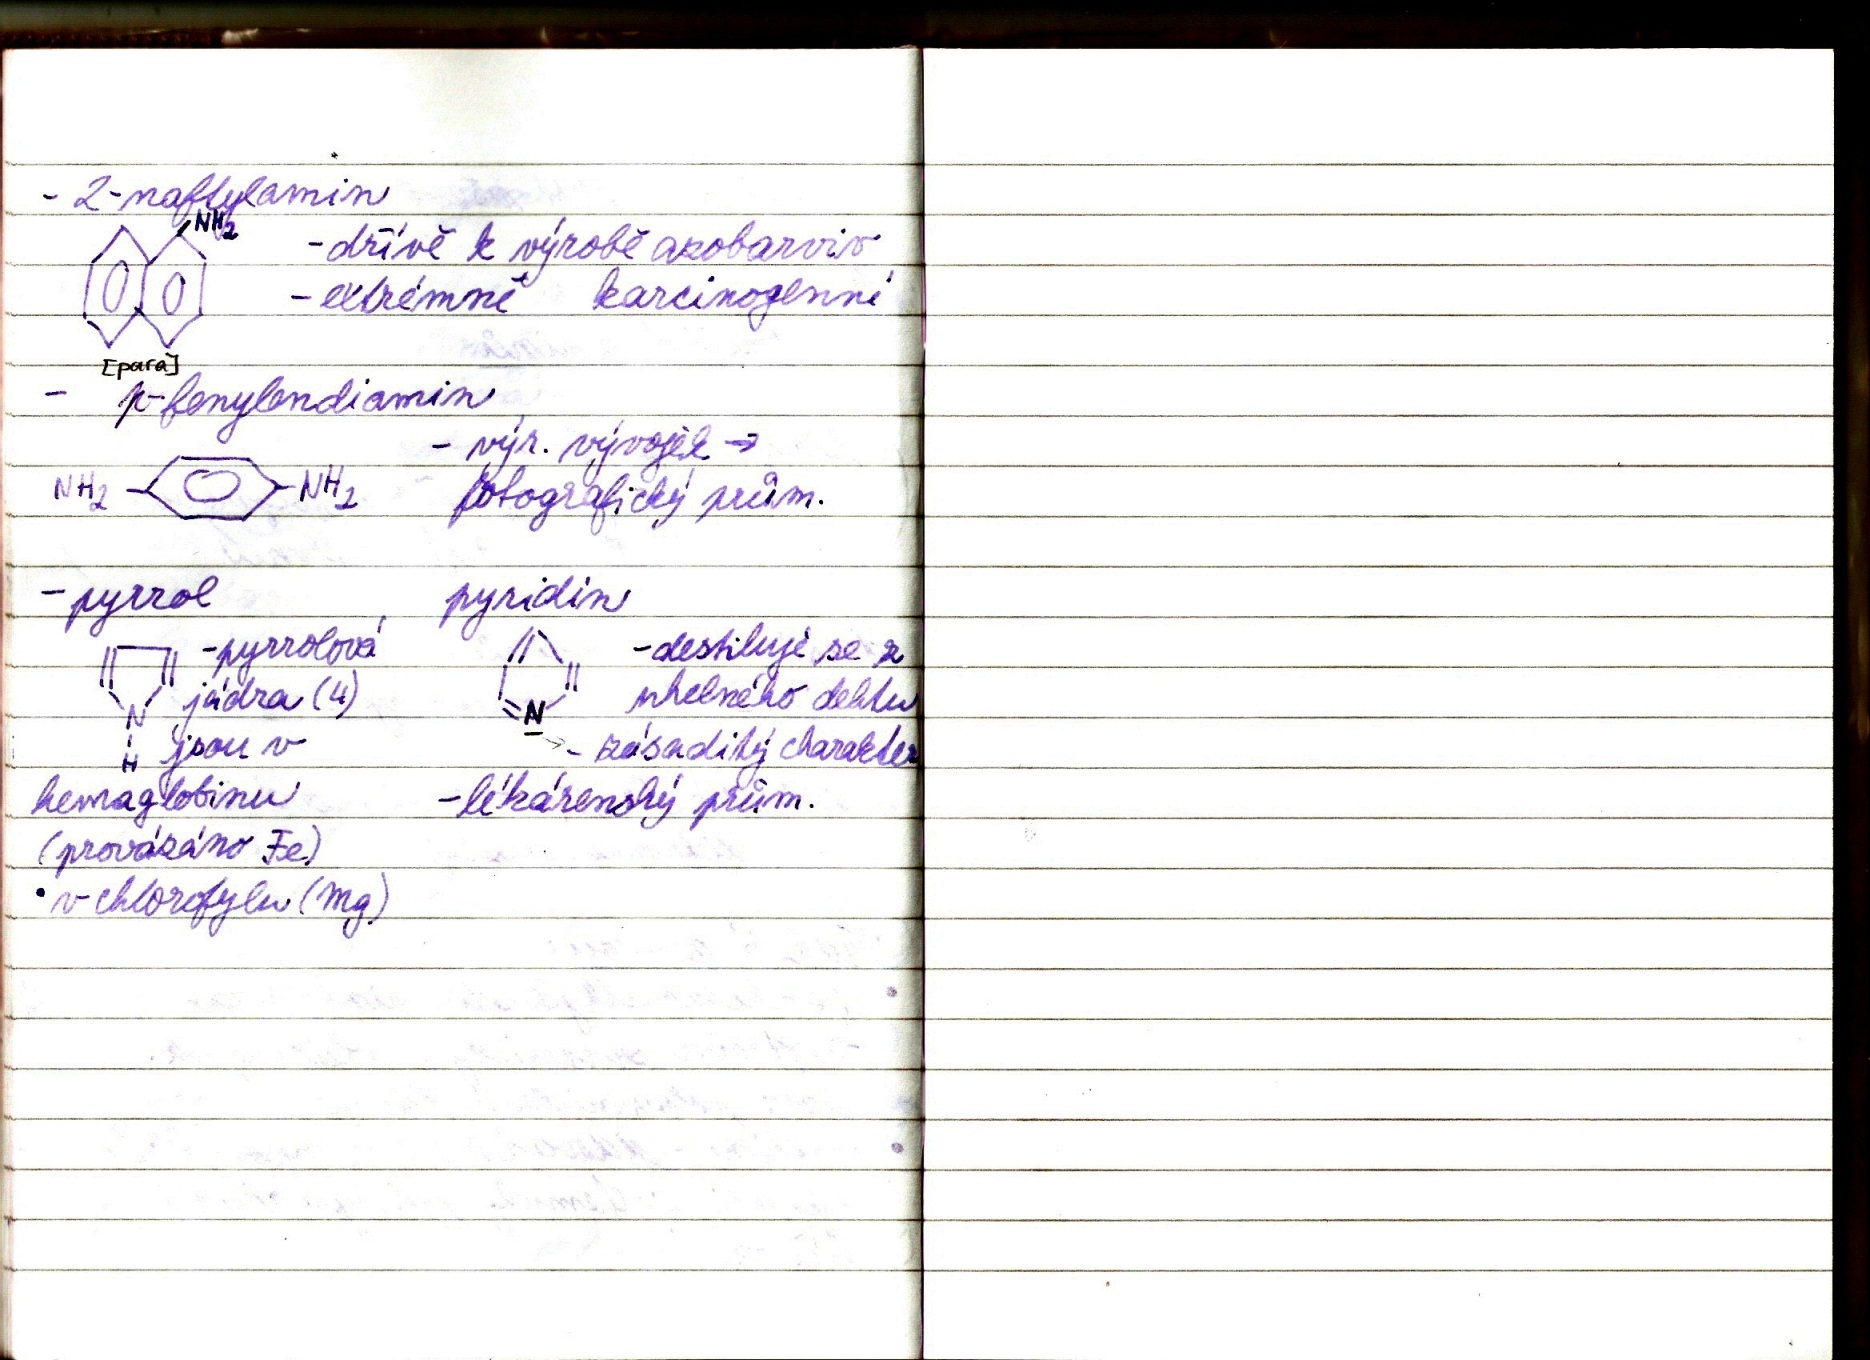 - 2-naftylamin
NH2
- dříve k výrobě azobarviv
- extrémně karcinogenní
[para]
- p-fenylendiamin
- výr. vývojek →
NH2 NH2
fotografický prům.
- pyrrol
- pyrrolová
jádra (4)
N
H
jsou v
hemaglobinu
(provázáno Fe)
• v chlorofylu (Mg)
pyridin
- destiluje se z
uhelného dehtu
N
→ - zásaditý charakter
- lékárenský prům.